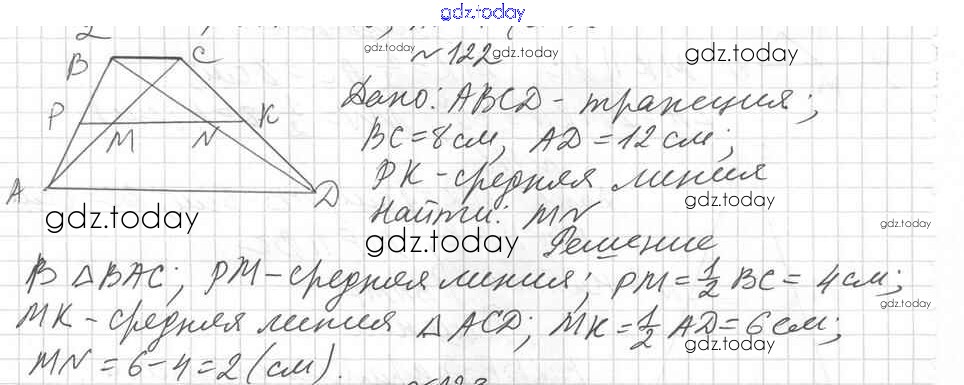 gdz.today
№122
gdz.today
gdz.today
B C
P M N K
A D
Дано: ABCD - трапеция;
gdz.today
BC = 8 см, AD = 12 см;
gdz.today
PK - средняя линия
gdz.today
Найти: MN
gdz.today
gdz.today
gdz.today
Решение
В △BAC; PM - средняя линия; PM = 1/2 BC = 4 см;
gdz.today
gdz.today
MK - средняя линия △ ACD; MK = 1/2 AD = 6 см;
gdz.today
MN = 6 - 4 = 2 (см).